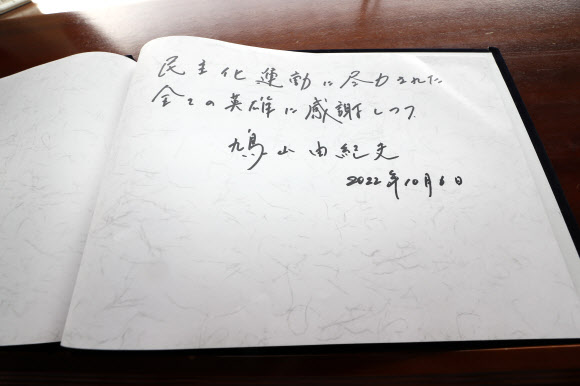 民主化運動に尽力された
全ての英雄に感謝しつつ
鳩山由紀夫
2022年10月6日